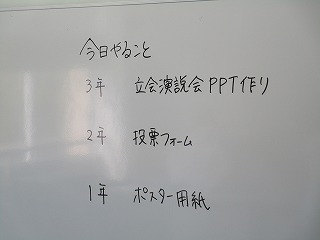 今日やること
3年 立会演説会PPT作り
2年 投票フォーム
1年 ポスター用紙